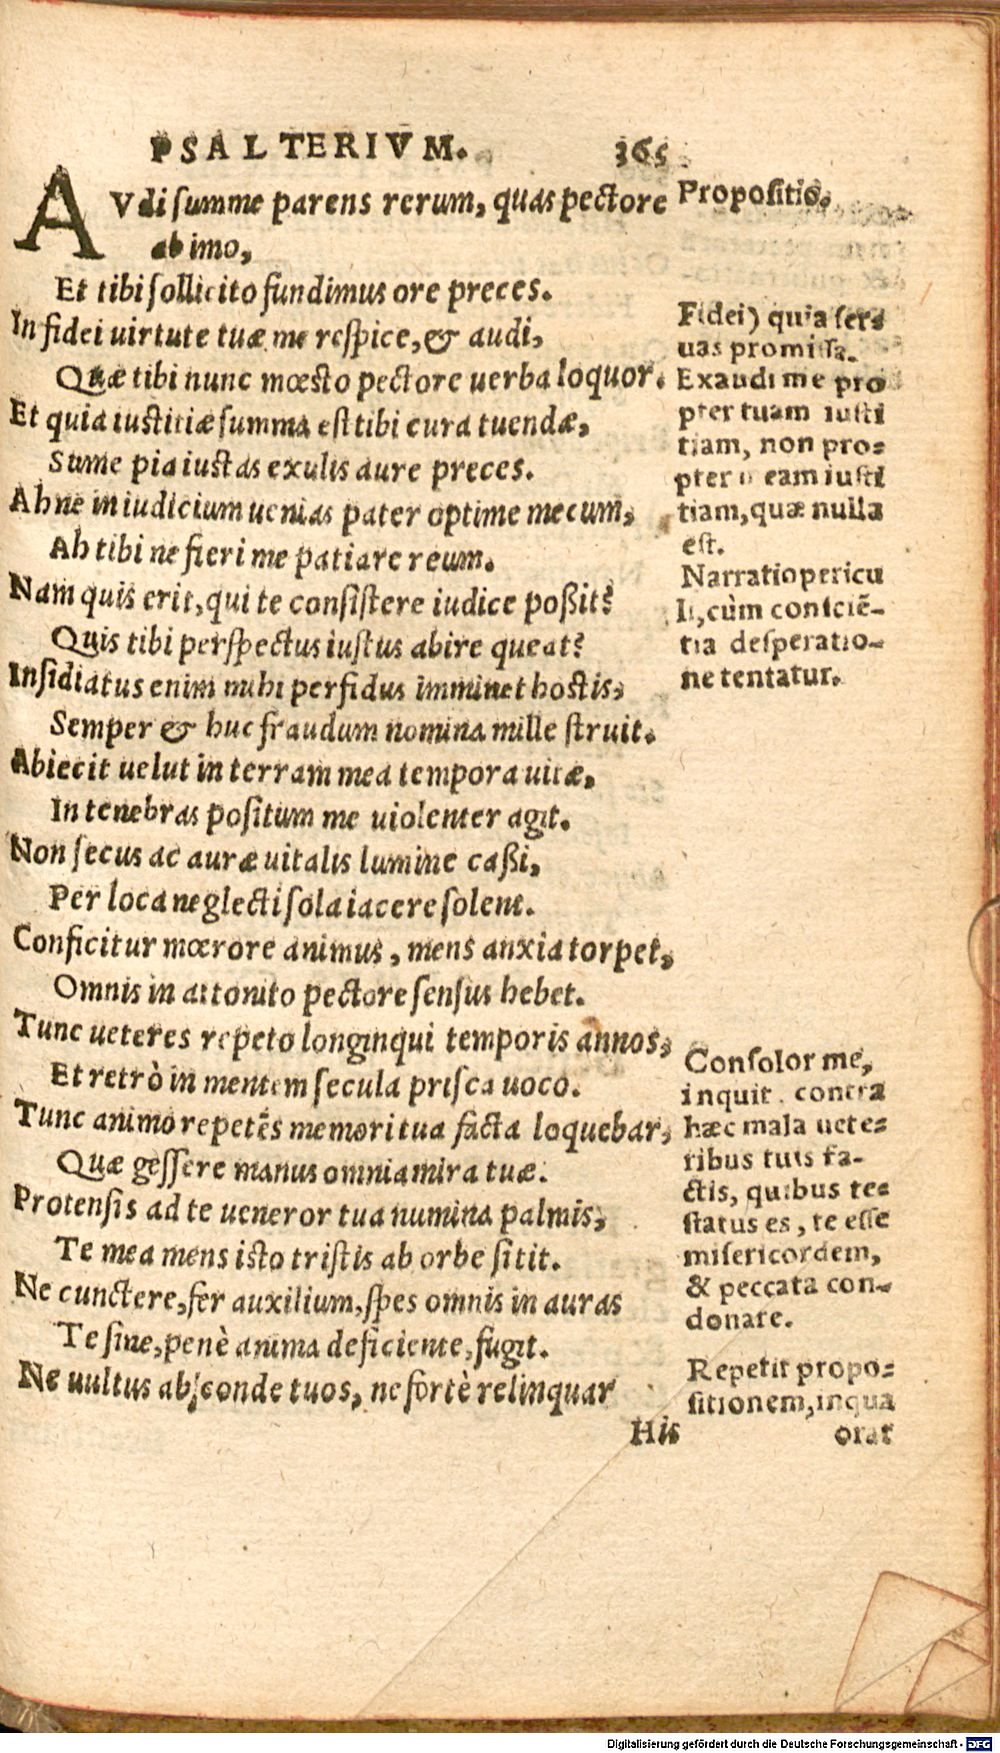 PSALTERIVM. 365
AVdi summe parens rerum, quas pectore
ab imo,
Et tibi sollicito fundimus ore preces.
In fidei uirtute tuæ me respice, & audi,
Quæ tibi nunc mœsto pectore uerba loquor.
Et quia iustitiæ summa est tibi cura tuendæ,
Sume pia iustas exulis aure preces.
Ah ne in iudicium uenias pater optime mecum,
Ah tibi ne fieri me patiare reum.
Nam quis erit, qui te consistere iudice poßit?
Quis tibi perspectus iustus abire queat?
Insidiatus enim mihi perfidus imminet hostis,
Semper & huc fraudum nomina mille struit.
Abiecit uelut in terram mea tempora uitæ,
In tenebras positum me uiolenter agit.
Non secus ac auræ uitalis lumine caßi,
Per loca neglecti sola iacere solent.
Conficitur mœrore animus, mens anxia torpet,
Omnis in attonito pectore sensus hebet.
Tunc ueteres repeto longinqui temporis annos,
Et retrò in mentem secula prisca uoco.
Tunc animo repetēs memori tua facta loquebar,
Quæ gessere manus omnia mira tuæ.
Protensis ad te ueneror tua numina palmis,
Te mea mens isto tristis ab orbe sitit.
Ne cunctere, fer auxilium, spes omnis in auras
Te sine, penè anima deficiente, fugit.
Ne uultus absconde tuos, ne fortè relinquar
His
Propositio.
Fidei) quia ser-
uas promissa.
Exaudi me pro
pter tuam iusti
tiam, non pro-
pter meam iusti
tiam, quæ nulla
est.
Narratio pericu
li, cùm consciē-
tia desperatio-
ne tentatur.
Consolor me,
inquit, contra
hæc mala uete-
ribus tuis fa-
ctis, quibus te-
status es, te esse
misericordem,
& peccata con-
donare.
Repetit propo-
sitionem, in qua
orat
Digitalisierung gefördert durch die Deutsche Forschungsgemeinschaft - DFG